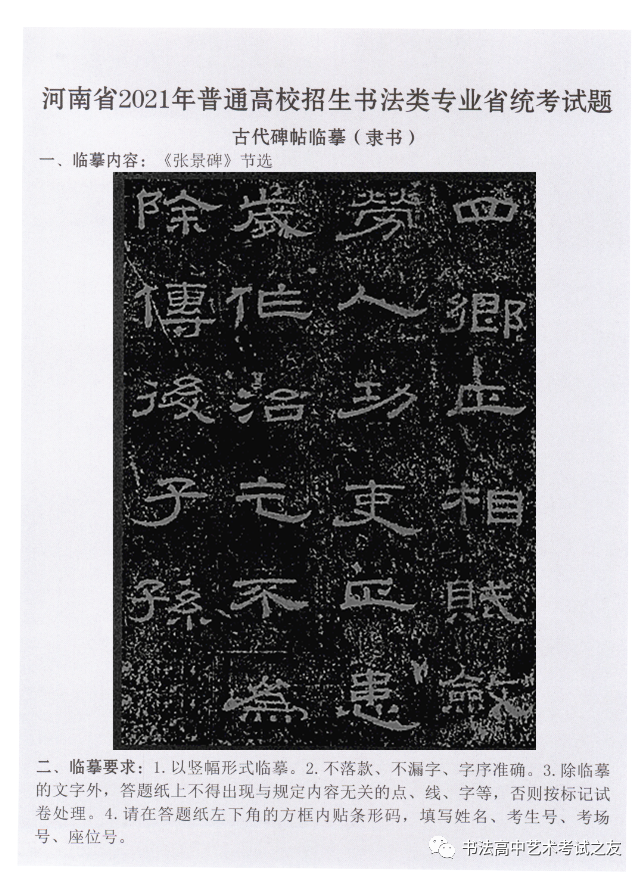 河南省2021年普通高校招生书法类专业省统考试题
古代碑帖临摹（隶书）
一、临摹内容：《张景碑》节选
四鄉正相賦斂
勞人功吏正患
歲作治乞不為
除傳後子孫
二、临摹要求：1.以竖幅形式临摹。2.不落款、不漏字、字序准确。3.除临摹
的文字外，答题纸上不得出现与规定内容无关的点、线、字等，否则按标记试
卷处理。4.请在答题纸左下角的方框内贴条形码，填写姓名、考生号、考场
号、座位号。
书法高中艺术考试之友